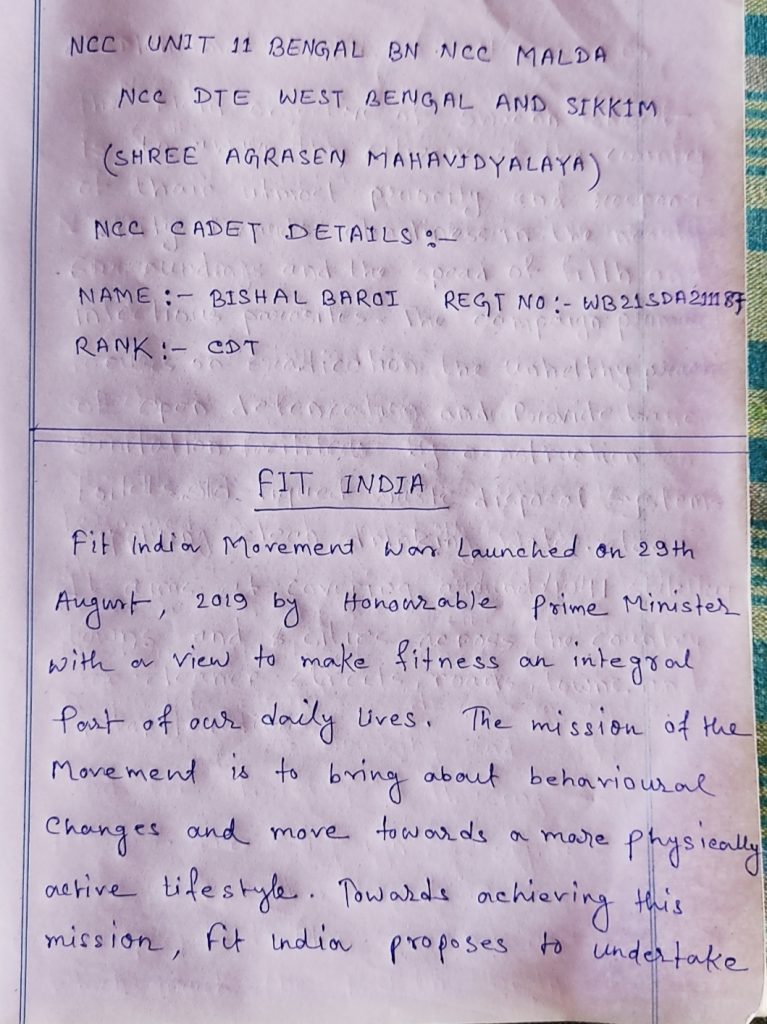 NCC UNIT 11 BENGAL BN NCC MALDA
NCC DTE WEST BENGAL AND SIKKIM
(SHREE AGRASEN MAHAVIDYALAYA)
NCC CADET DETAILS :-
NAME :- BISHAL BAROI REGT NO :- WB21SDA211187
RANK :- CDT
FIT INDIA
Fit India Movement was Launched on 29th
August, 2019 by Honourable Prime Minister
with a view to make fitness an integral
Part of our daily lives. The mission of the
Movement is to bring about behavioural
Changes and move towards a more physically
active lifestyle. Towards achieving this
mission, Fit India proposes to undertake